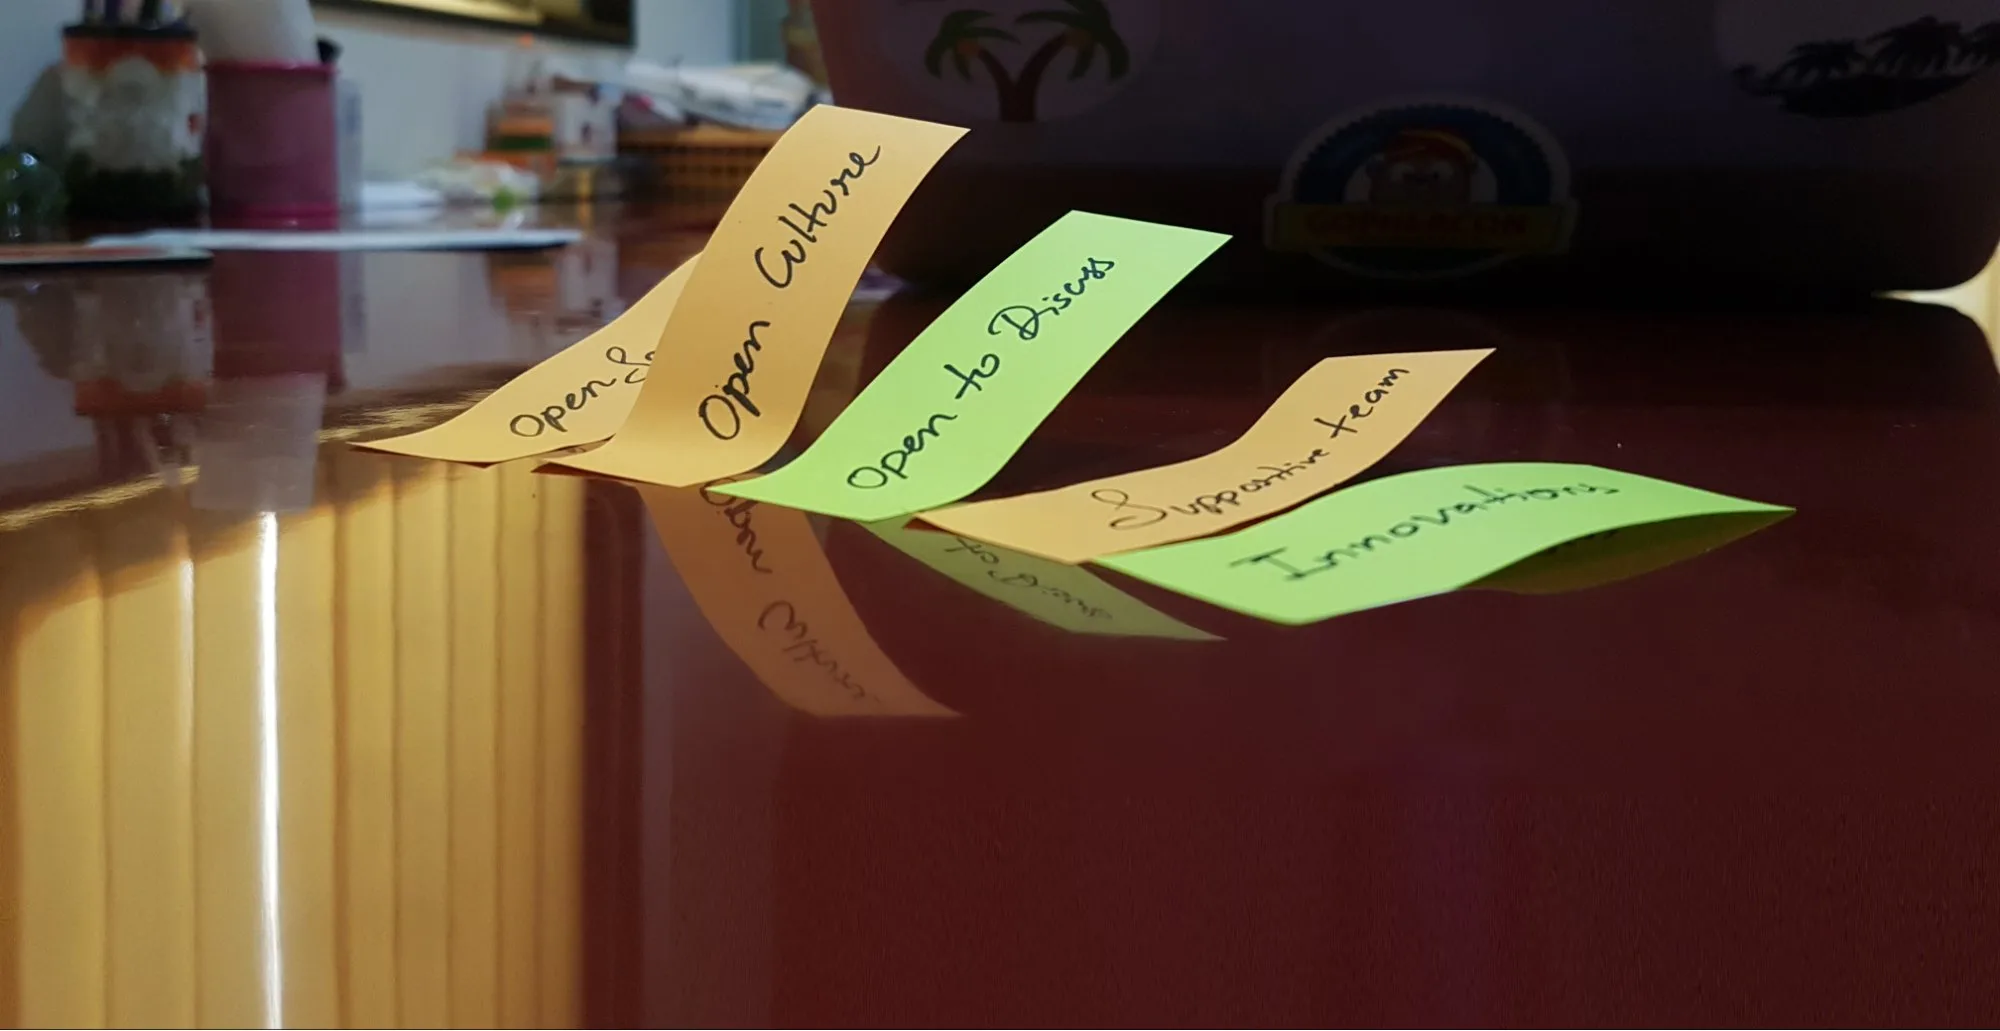 Open
Open Culture
Open to Discuss
Supportive team
Innovations
GOPHERCON